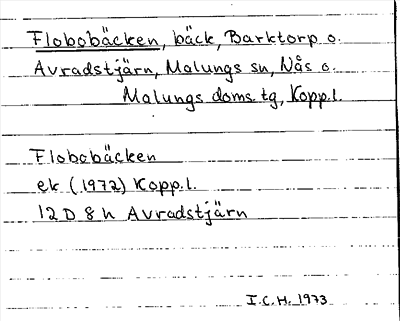 Flobobäcken, bäck, Barktorp o.
Avradstjärn, Malungs sn, Nås o.
Malungs doms. tg, Kopp.l.
Flobobäcken
ek (1972) Kopp.l.
12 D 8 h Avradstjärn
I.C.H. 1973